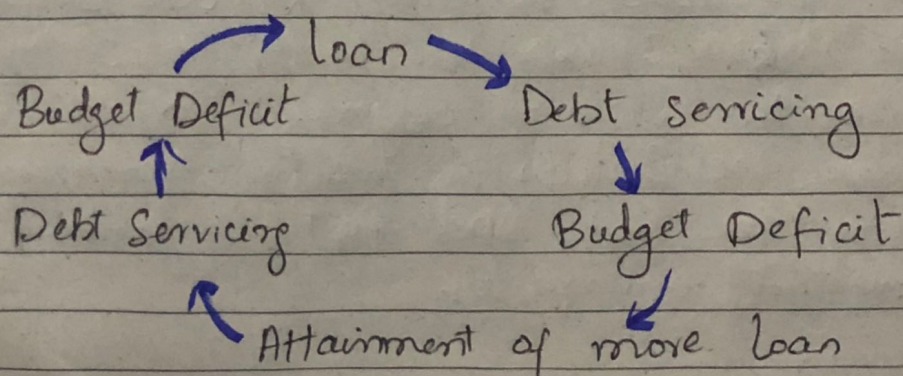 loan
Budget Deficit Debt servicing
Debt Servicing Budget Deficit
Attainment of more loan